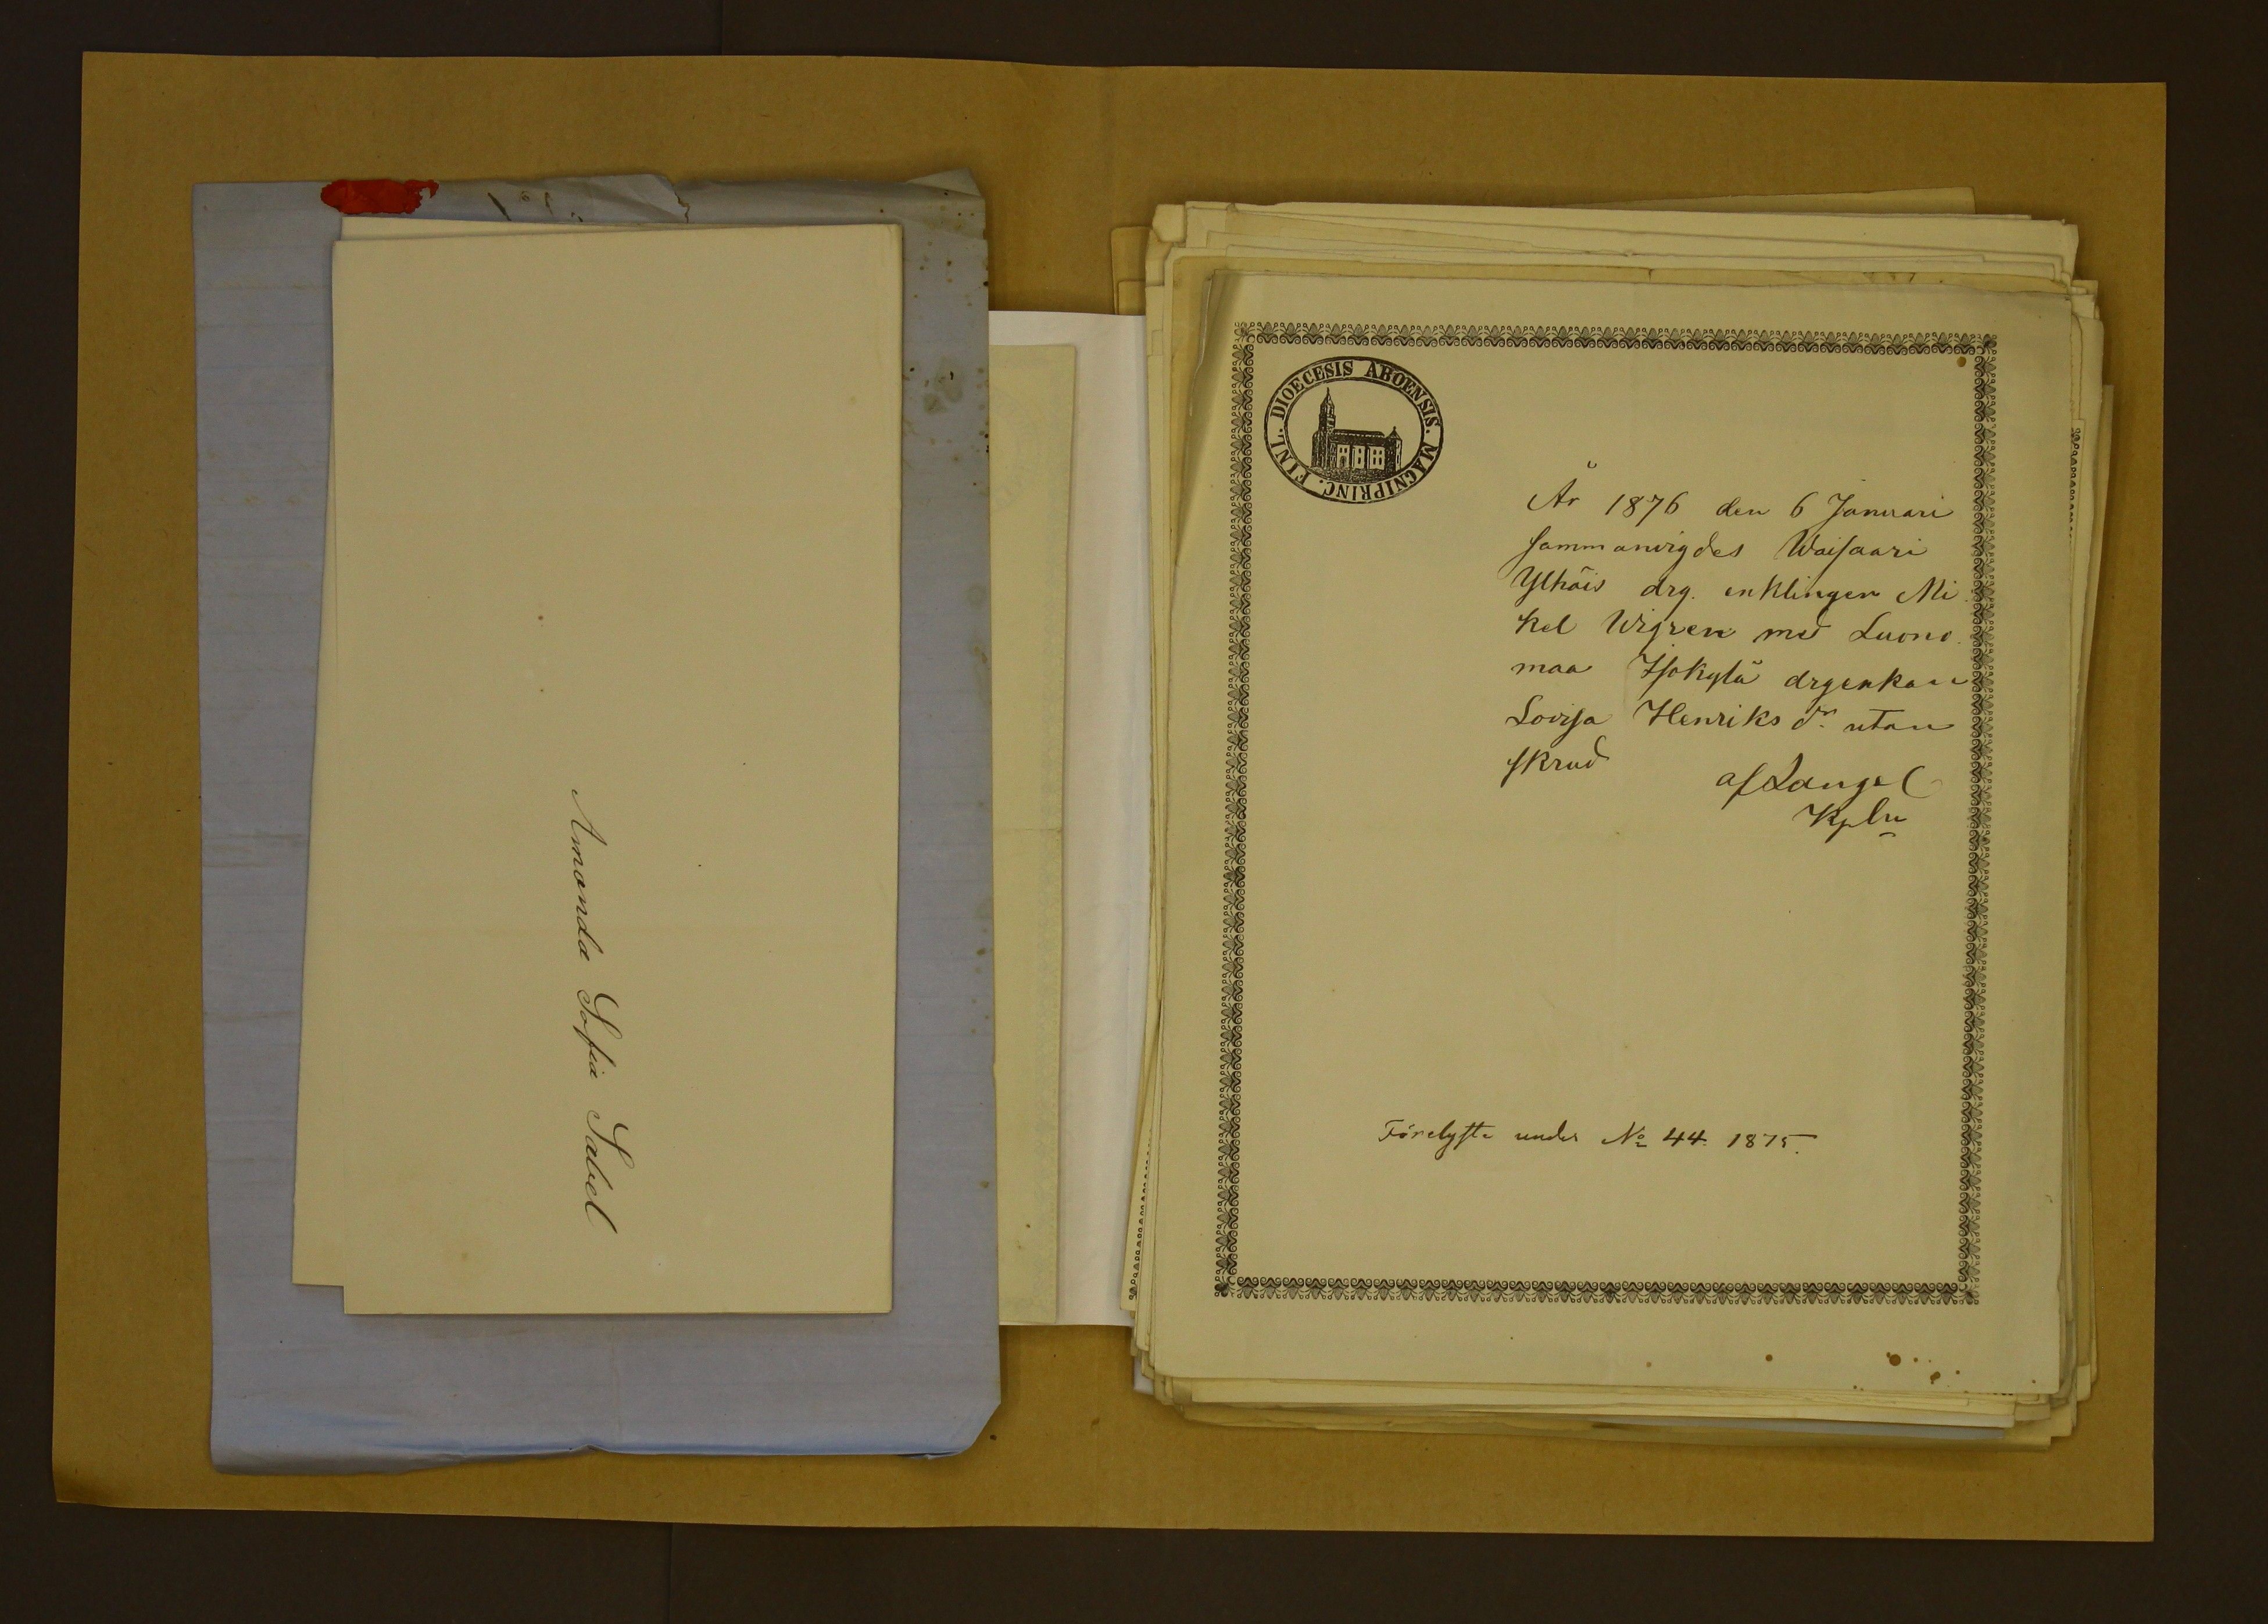 Amanda Sofia Sabel
FINL. DIOECESIS ABOENSIS. MAGNIPRINC.
År 1876 den 6 Januari
sammanvigdes Waisaari
Ylhäis drg. enklingen Mi
kel Wigren med Luono
maa Isokylä drgenkan
Lovisa Henriks dr utan
skrud
af Langel
Kpln
Förelyste under No 44. 1875.